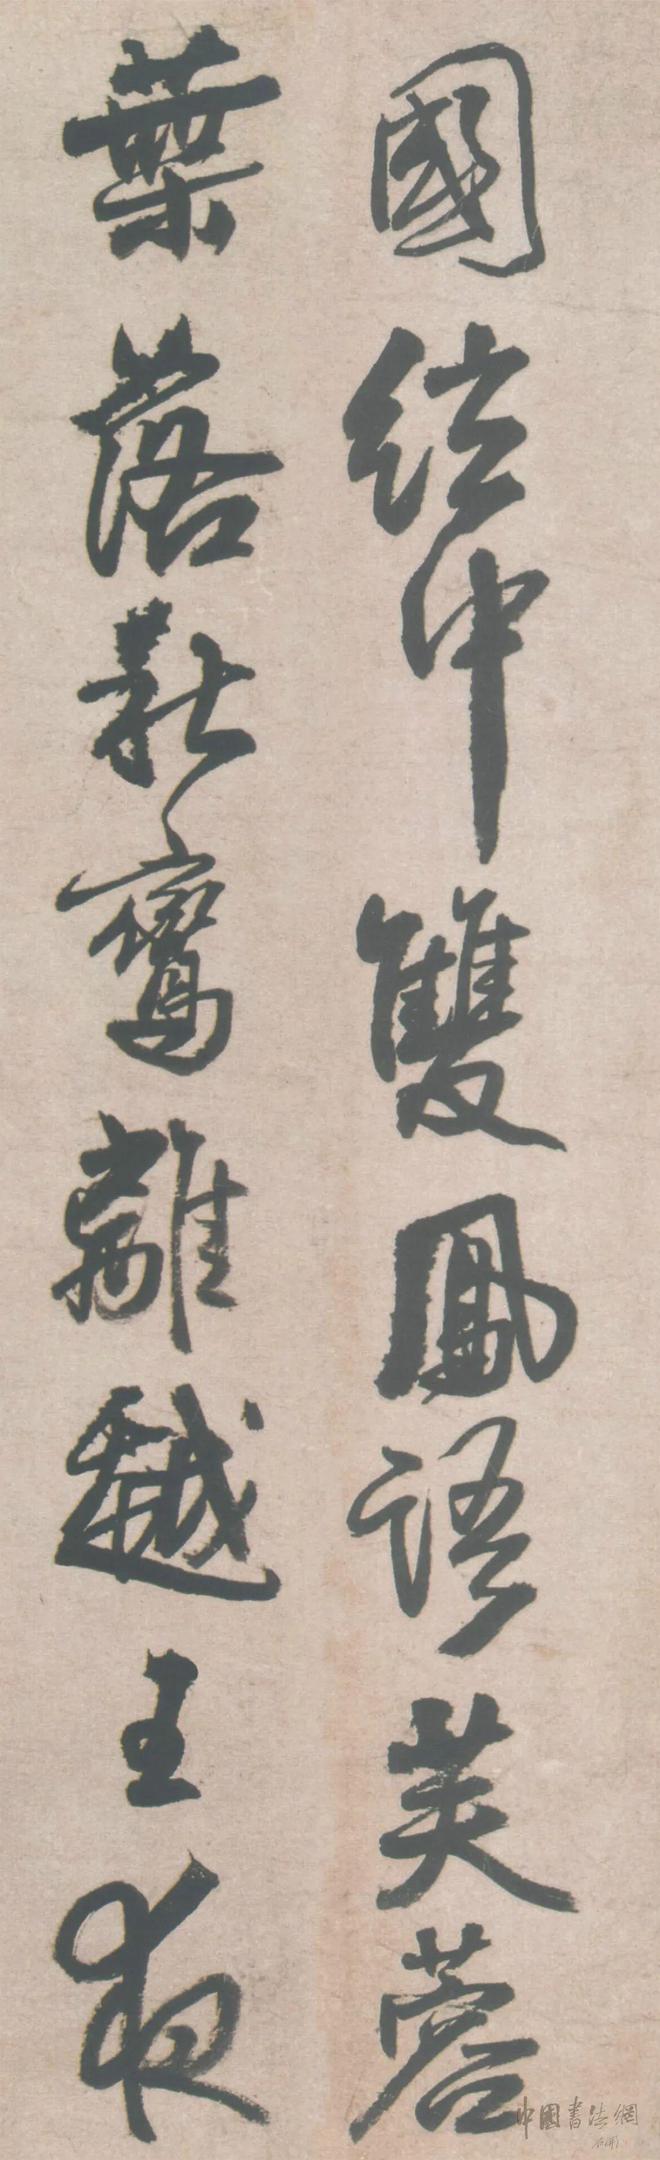 國絃中雙鳳語芙蓉
葉落秋鸞離越王夜
中國書法網